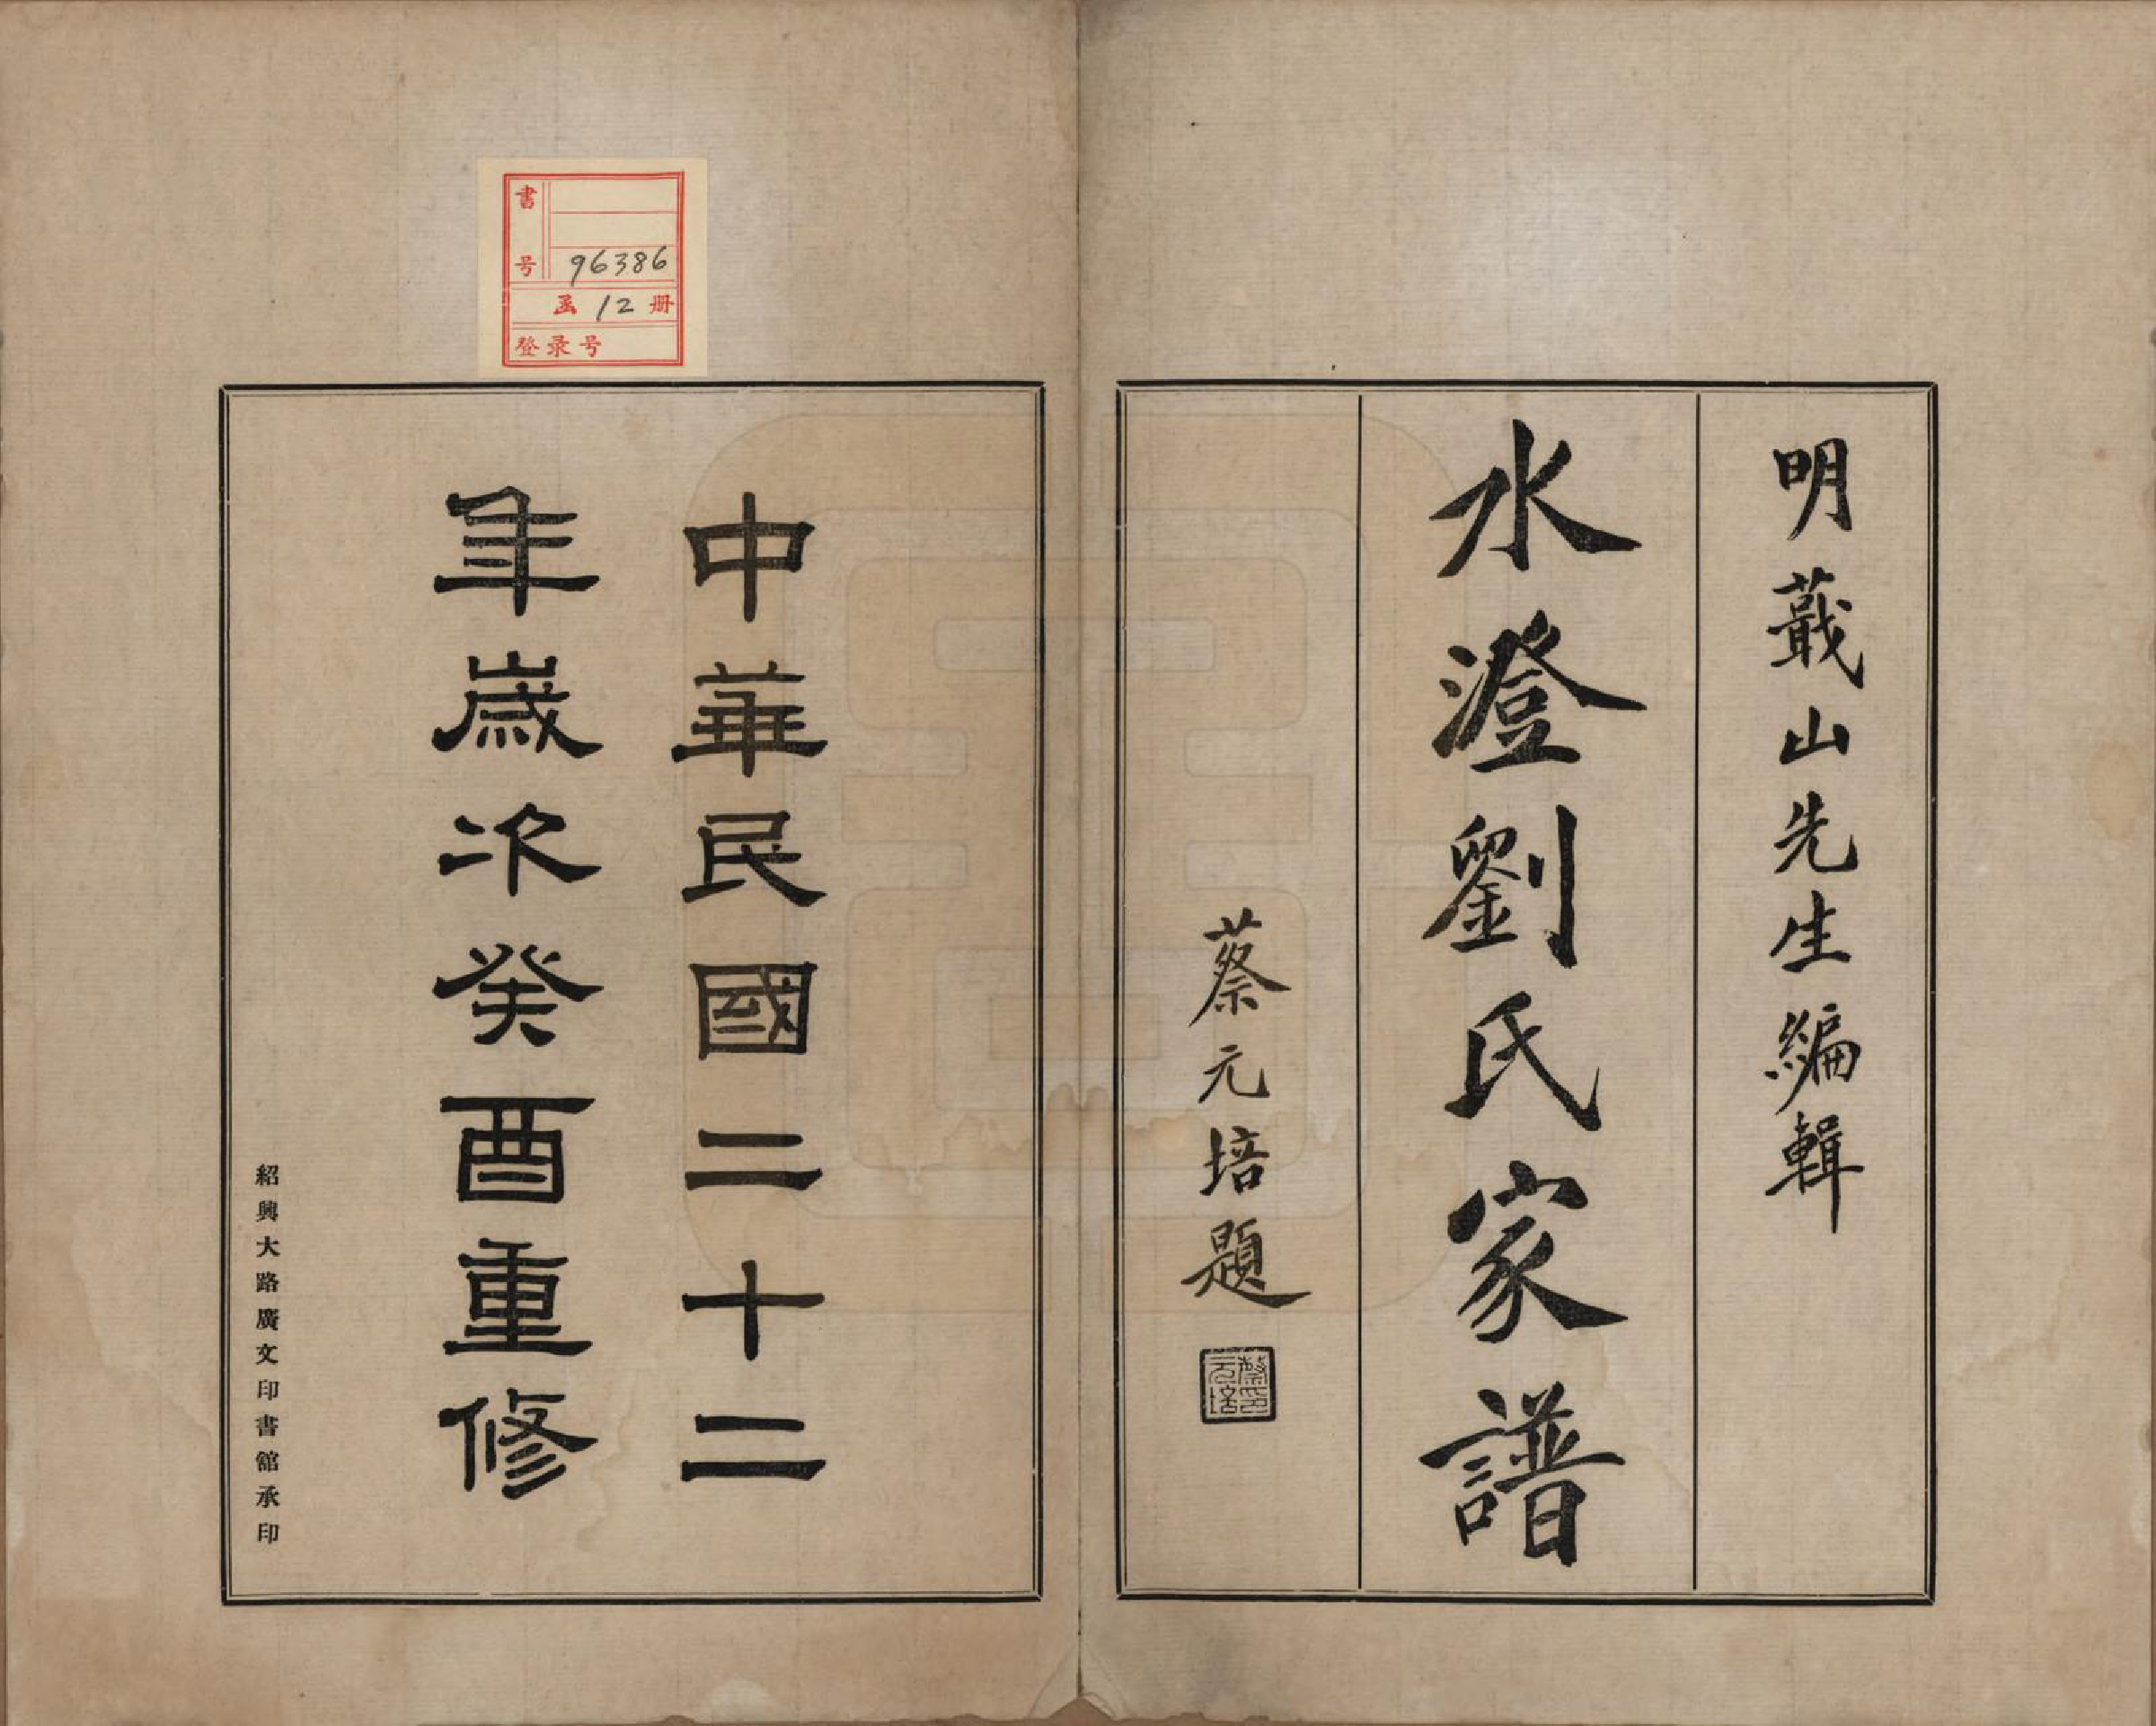 明蕺山先生編輯
水澄劉氏家譜
蔡元培題
蔡元培印
中華民國二十二
年歲次癸酉重修
紹興大路廣文印書館承印
書号 96386
函 12 册
登录号